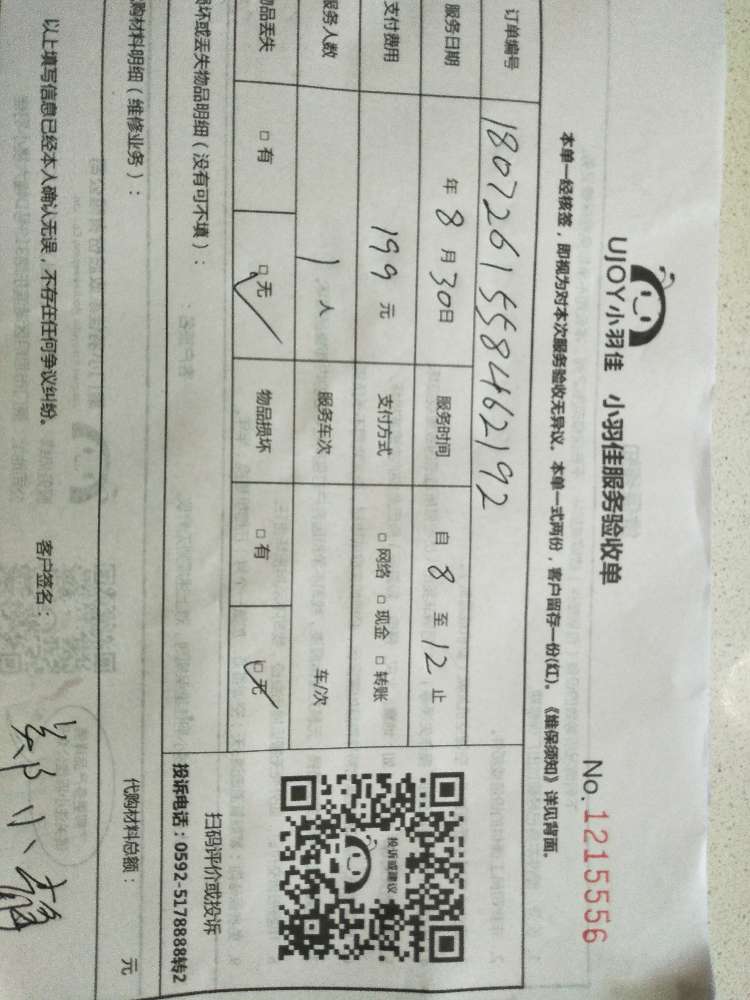 UJOY小羽佳 小羽佳服务验收单
No. 1215556
本单一经核签，即视为对本次服务验收无异议。本单一式两份，客户留存一份(红)。《维保须知》详见背面。
订单编号 1807261558462192
服务日期 年 8 月 30 日 服务时间 自 8 至 12 止
支付费用 199 元 支付方式 □ 网络 □ 现金 □ 转账
服务人数 1 人 服务车次 车/次
物品丢失 □ 有 □ 无 ✓ 物品损坏 □ 有 □ 无 ✓
投诉或建议
扫码评价或投诉
投诉电话：0592-5178888转2
损坏或丢失物品明细（没有可不填）：
购材料明细（维修业务）： 代购材料总额： 元
以上填写信息已经本人确认无误，不存在任何争议纠纷。 客户签名：